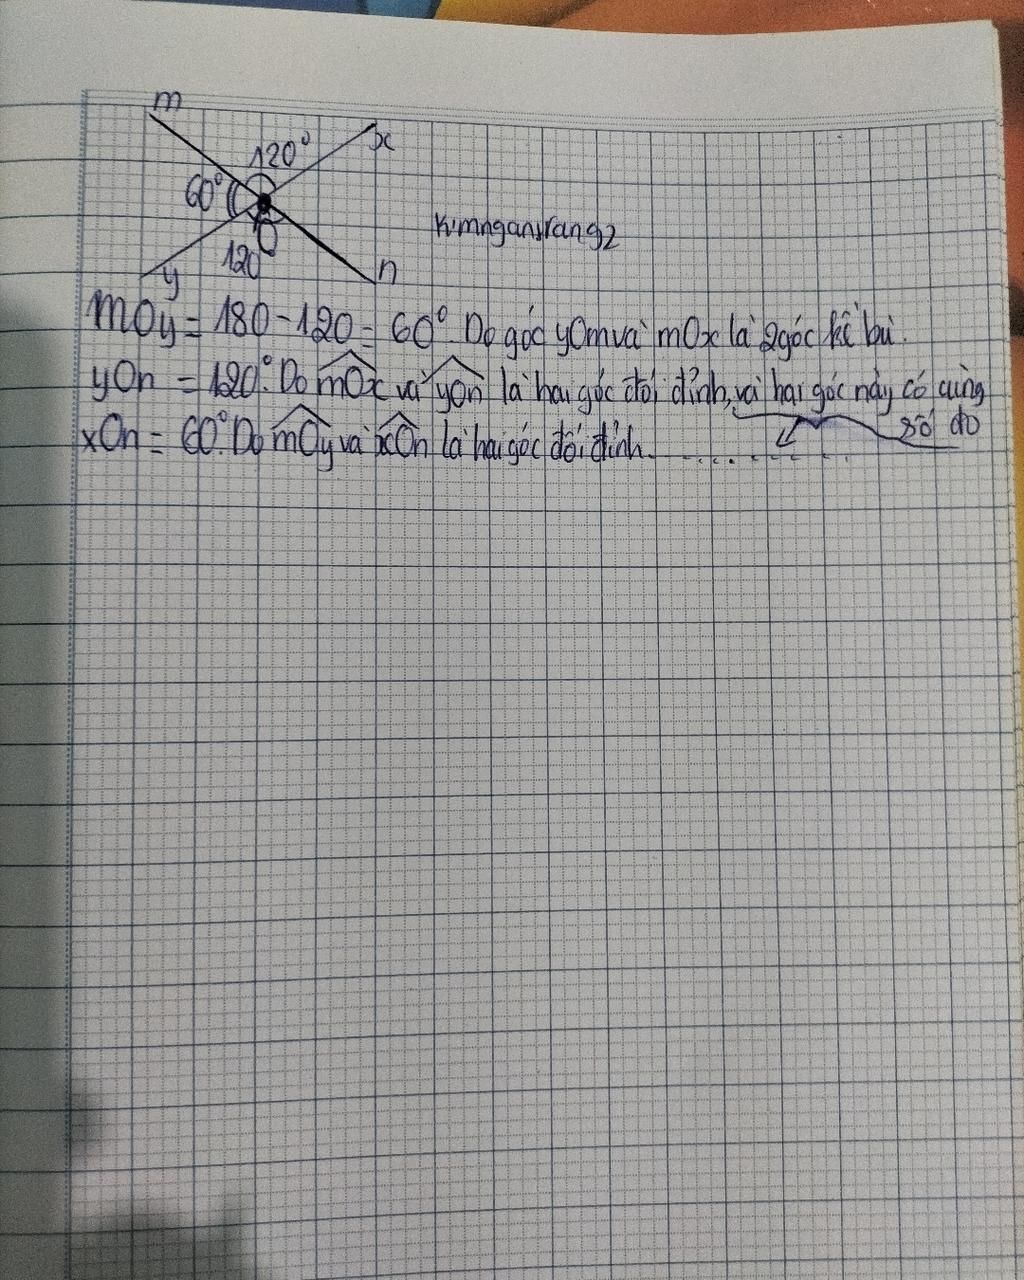 m
x
120°
60°
O
120
y
n
kimnganvrang2
mOy = 180 - 120 = 60°. Do góc yOm và mOx là 2 góc kề bù.
yOn = 120°. Do mOx và yOn là hai góc đối đỉnh, và hai góc này có cùng
số đo
xOn = 60°. Do mOy và xOn là hai góc đối đỉnh.........